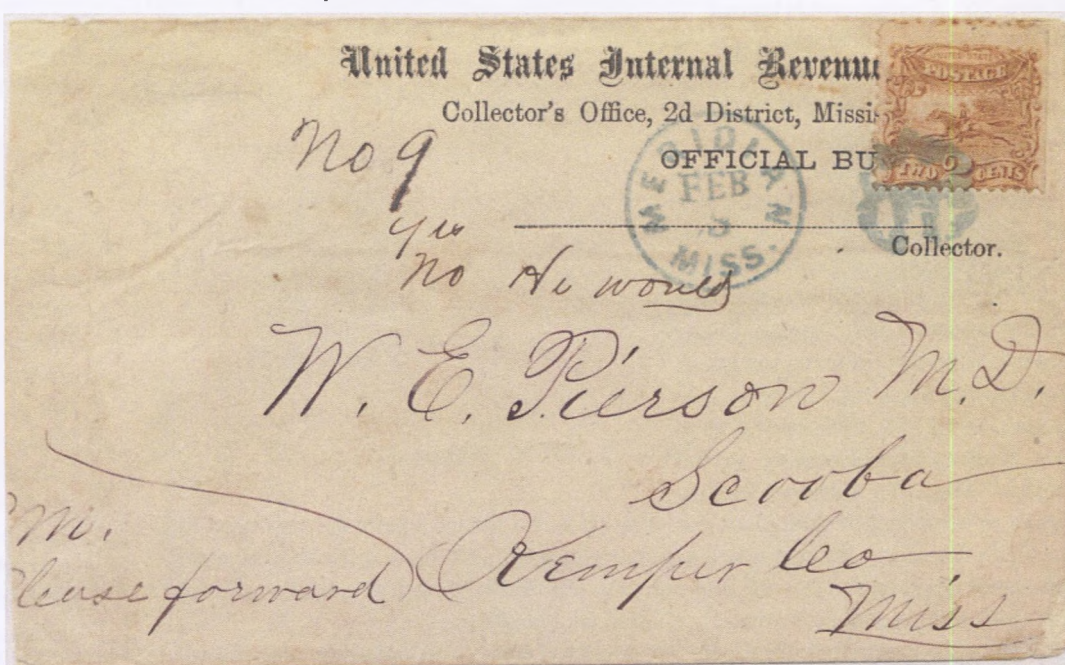 United States Internal Revenue
POSTAGE
Collector's Office, 2d District, Missis
OFFICIAL BU
TWO 2 CENTS
MERIDIAN
FEB
MISS.
Collector.
No 9
yes
no He would
W. E. Pierson M.D.
Scooba
Kemper Co.
Miss
P.M.
Please forward